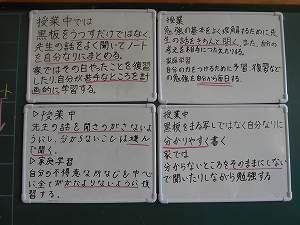 授業中では
黒板をうつすだけではなく、
先生の話をよく聞いてノート
を自分なりにまとめる。
家ではその日やったことを復習
したり、自分が苦手なところを計
画的に学習する。
授業
勉強の基本をよく理解するために先
生の話をきちんと聞く。また、自分の
考えを相手につたえたりする。
家庭学習
自分の力をつけるために予習、復習など
の勉強を自分から毎日する。
▷授業中
先生の話を聞きのがさないよ
うにし、分からないことは進ん
で聞く。
▷家庭学習
自分の不得意な所などを中心
に全てがかたよりないように復
習する。
授業中
黒板をまる写しではなく自分なりに
分かりやすく書く
家では
分からないところをそのままにしない
で聞いたりしながら勉強する